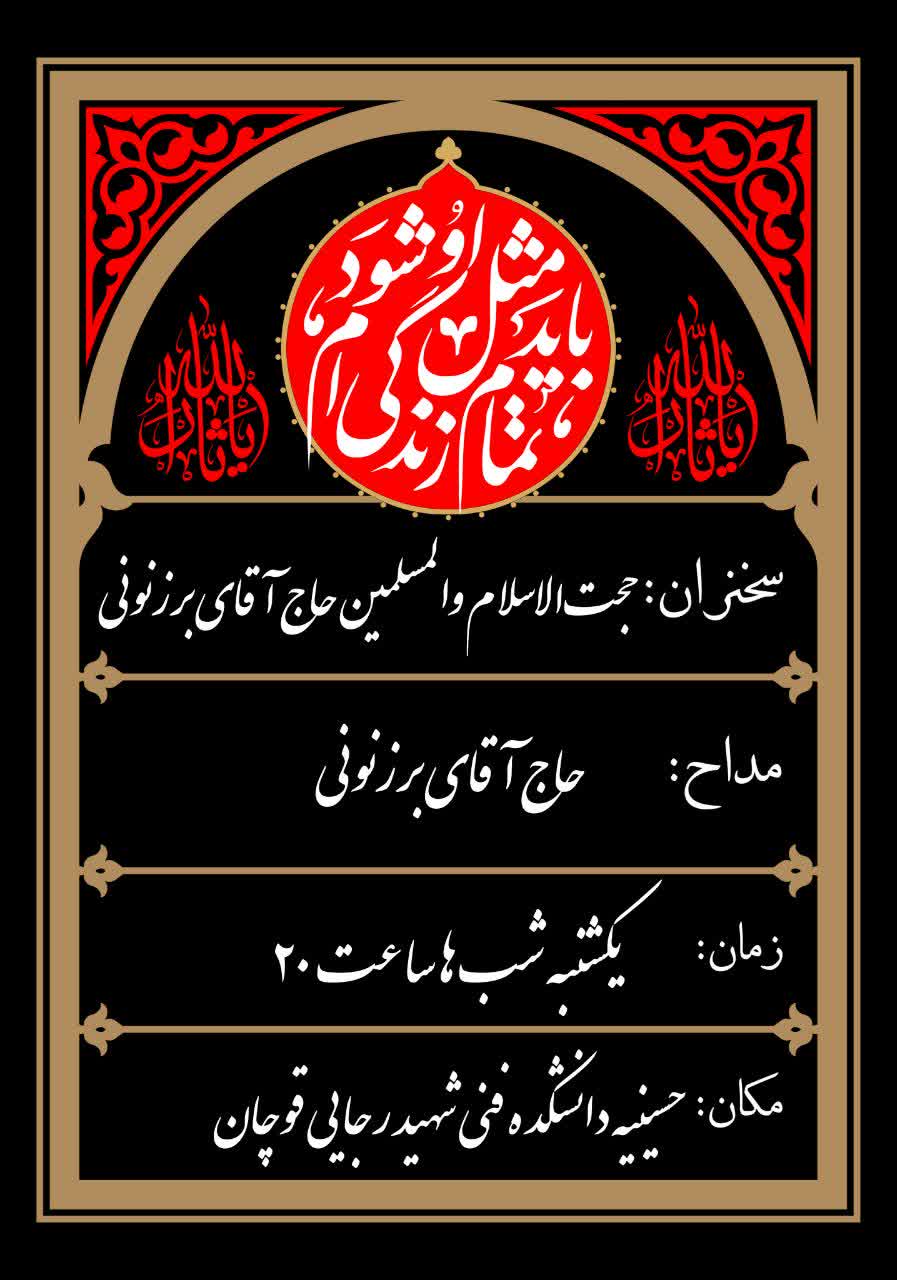 باید مثل او شود
تمام زندگی ام
یا ثارالله
یا ثارالله
سخنران: حجت الاسلام والمسلمین حاج آقای برزنونی
مداح: حاج آقای برزنونی
زمان: یکشنبه شب ها ساعت ۲۰
مکان: حسینیه دانشکده فنی شهید رجایی قوچان